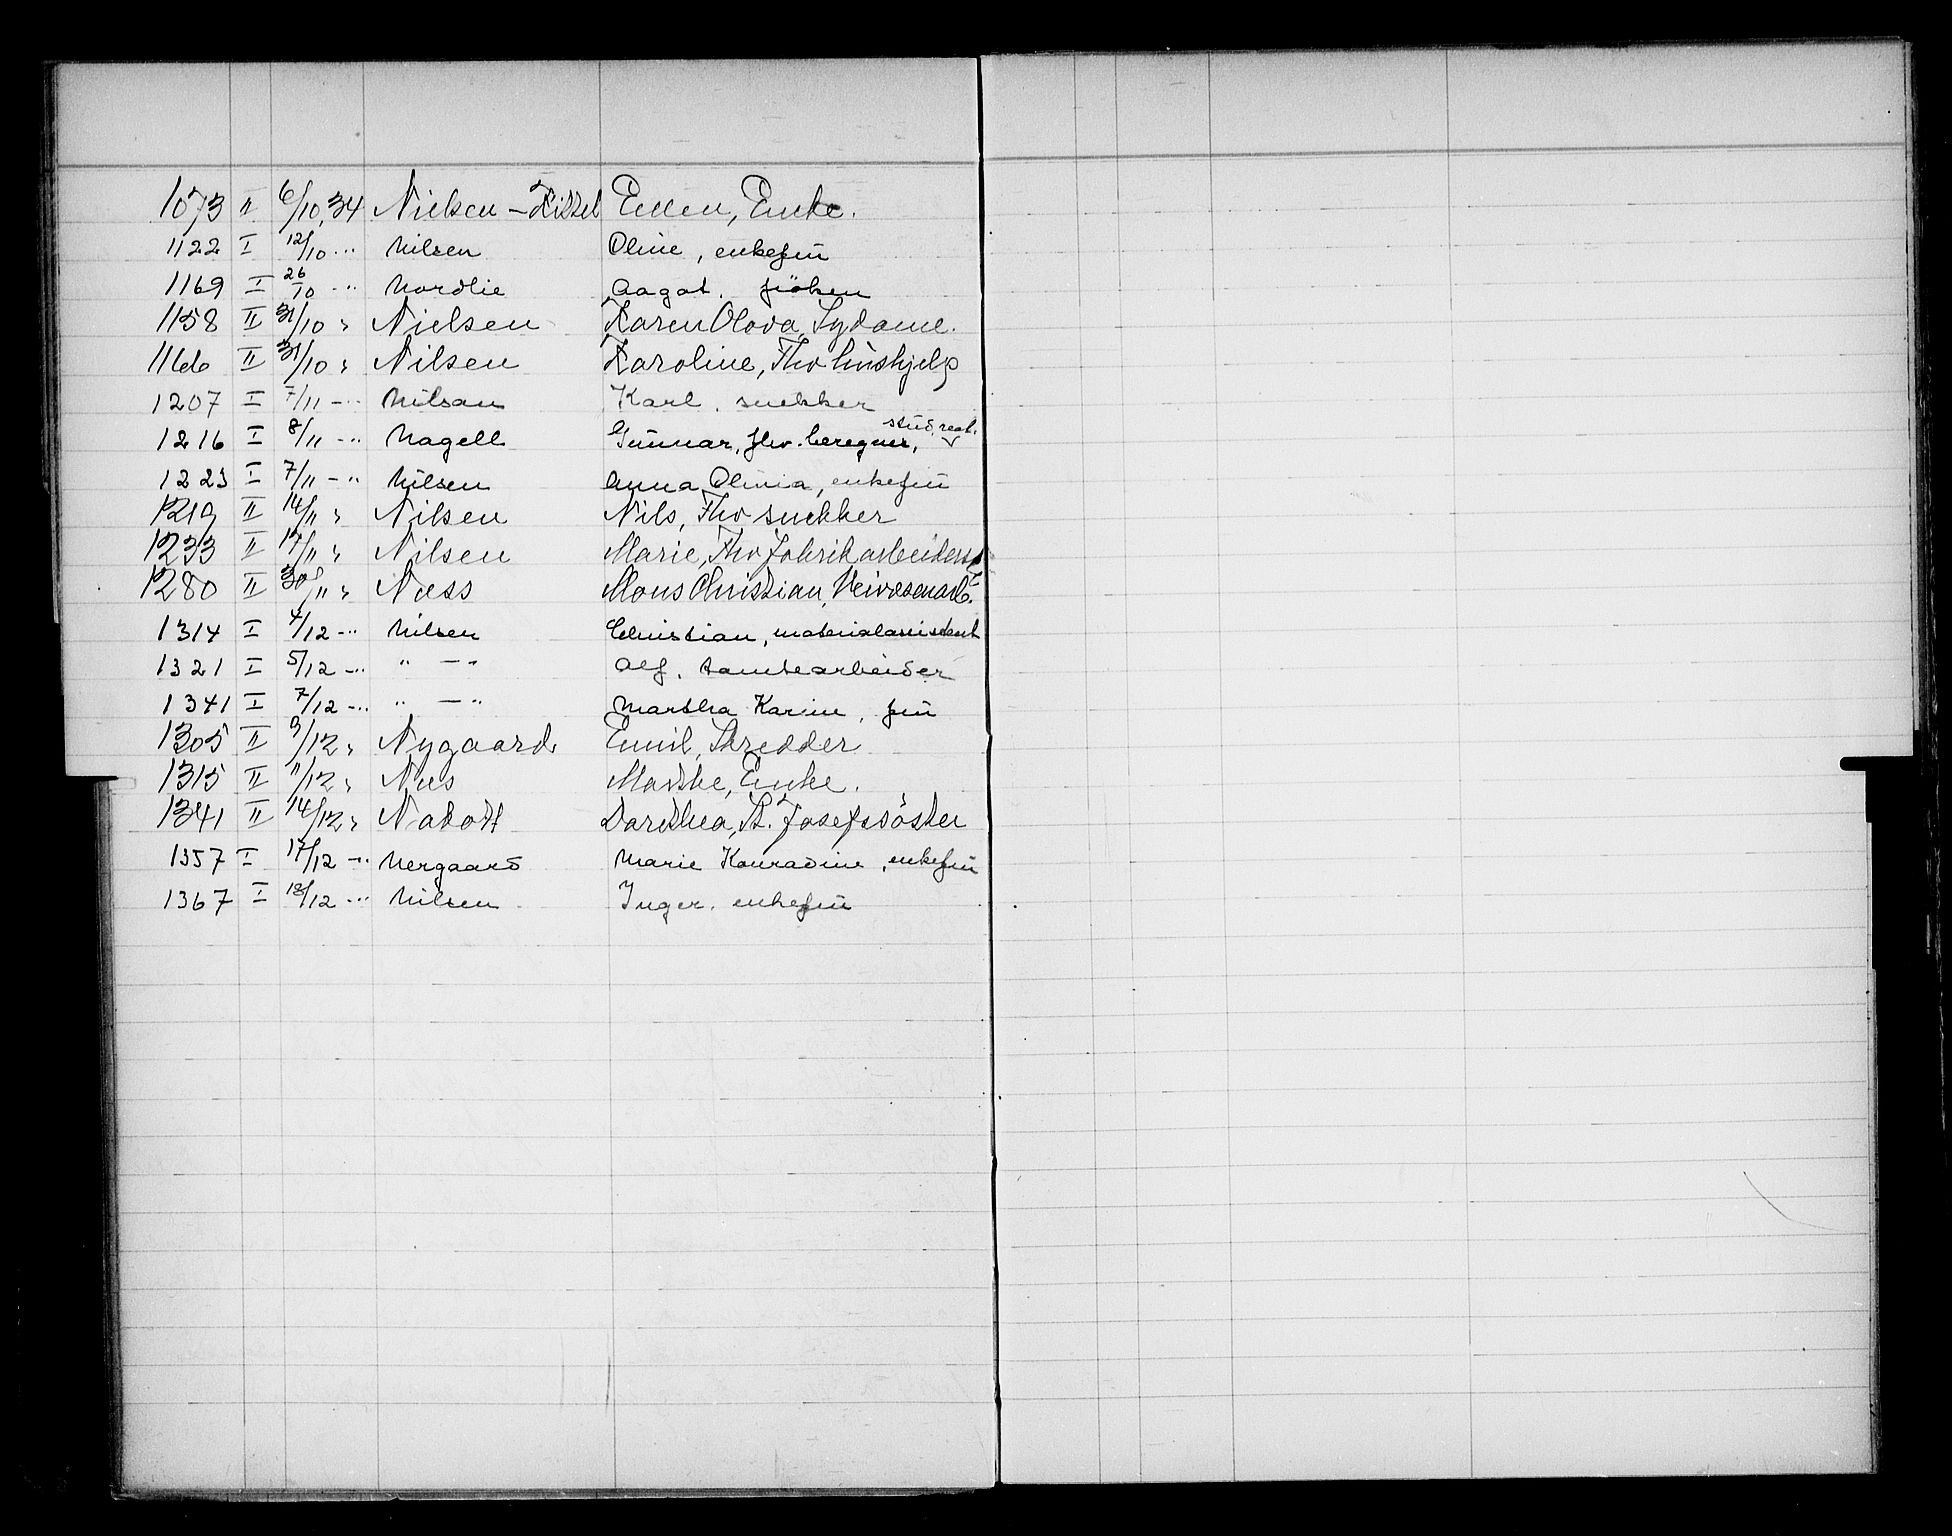 1073 II 6/10,34 Nielsen-Kissel Ellen, Enke.
1122 I 12/10 -" Nilsen Oline, enkefru
1169 I 26/10 -" Nordlie Aagot. frøken
1158 II 31/10 " Nielsen Karen Olava, Sydame.
1166 II 31/10 " Nilsen Karoline, Fhv hushjelp
1207 I 7/11 -" Nilsen Karl. snekker
1216 I 8/11 -" Nagell Gunnar, fhv. beregner, stud. real.
1223 I 7/11 -" Nilsen Anna Olivia, enkefru
1219 II 14/11 " Nilsen Nils, Fhv snekker
1233 II 17/11 " Nilsen Marie, Fhv fabrikarbeiderske
1280 II 30/11 " Næss Mons Christian, Veivesenarb.
1314 I 4/12 -" Nilsen Christian, materialassistent
1321 I 5/12 -" " -" Alf. tomtearbeider
1341 I 7/12 -" " -" Martha Karine, fru
1305 II 9/12 " Nygaard Emil, Skredder
1315 II 11/12 " Næs Marthe, Enke.
1341 II 14/12 " Nadolf Dorothea, St. Josefssöster
1357 I 17/12 -" Nergaard Marie Konradine, enkefru
1367 I 18/12 -" Nilsen Inger. enkefru